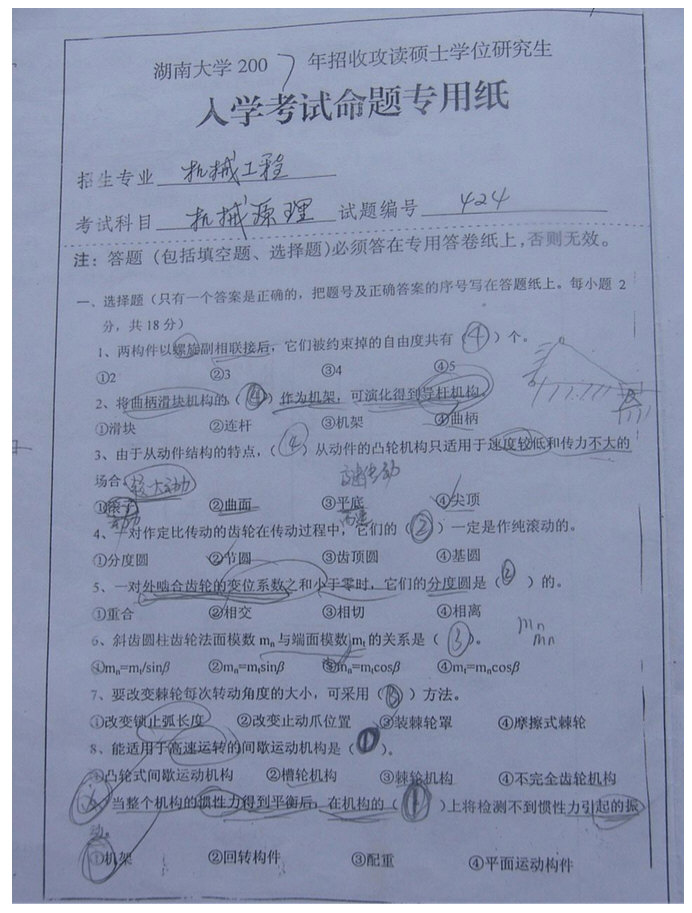 湖南大学 2007 年招收攻读硕士学位研究生
入学考试命题专用纸
招生专业 机械工程
考试科目 机械原理 试题编号 424
注：答题（包括填空题、选择题)必须答在专用答卷纸上,否则无效。
一、选择题（只有一个答案是正确的，把题号及正确答案的序号写在答题纸上。每小题 2
分，共 18 分）
1、两构件以螺旋副相联接后，它们被约束掉的自由度共有（④）个。
①2 ②3 ③4 ④5
2、将曲柄滑块机构的（④）作为机架，可演化得到导杆机构。
①滑块 ②连杆 ③机架 ④曲柄
3、由于从动件结构的特点，（④）从动件的凸轮机构只适用于速度较低和传力不大的
场合。较大动力 高速传动
①滚子 ②曲面 ③平底 ④尖顶
高速
4、一对作定比传动的齿轮在传动过程中，它们的（②）一定是作纯滚动的。
①分度圆 ②节圆 ③齿顶圆 ④基圆
5、一对外啮合齿轮的变位系数之和小于零时，它们的分度圆是（②）的。
①重合 ②相交 ③相切 ④相离
6、斜齿圆柱齿轮法面模数 mn 与端面模数 mt 的关系是（③）。 mn
mn
①mn=mt/sinβ ②mn=mtsinβ ③mn=mtcosβ ④mt=mncosβ
7、要改变棘轮每次转动角度的大小，可采用（③）方法。
①改变锁止弧长度 ②改变止动爪位置 ③装棘轮罩 ④摩擦式棘轮
8、能适用于高速运转的间歇运动机构是（①）。
①凸轮式间歇运动机构 ②槽轮机构 ③棘轮机构 ④不完全齿轮机构
9、当整个机构的惯性力得到平衡后，在机构的（①）上将检测不到惯性力引起的振
动。
①机架 ②回转构件 ③配重 ④平面运动构件